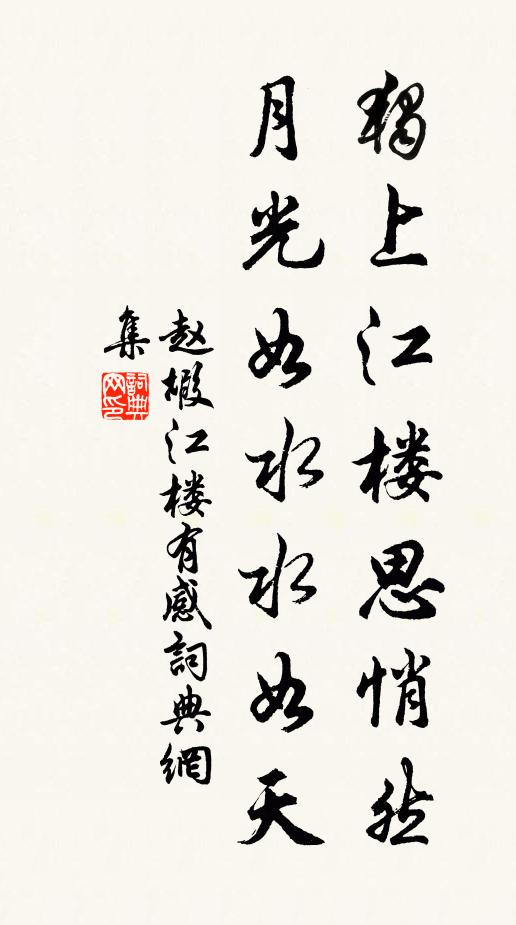 獨上江楼思悄然
月光如水水如天
赵嘏江楼有感詞典網
集
詞典
网印